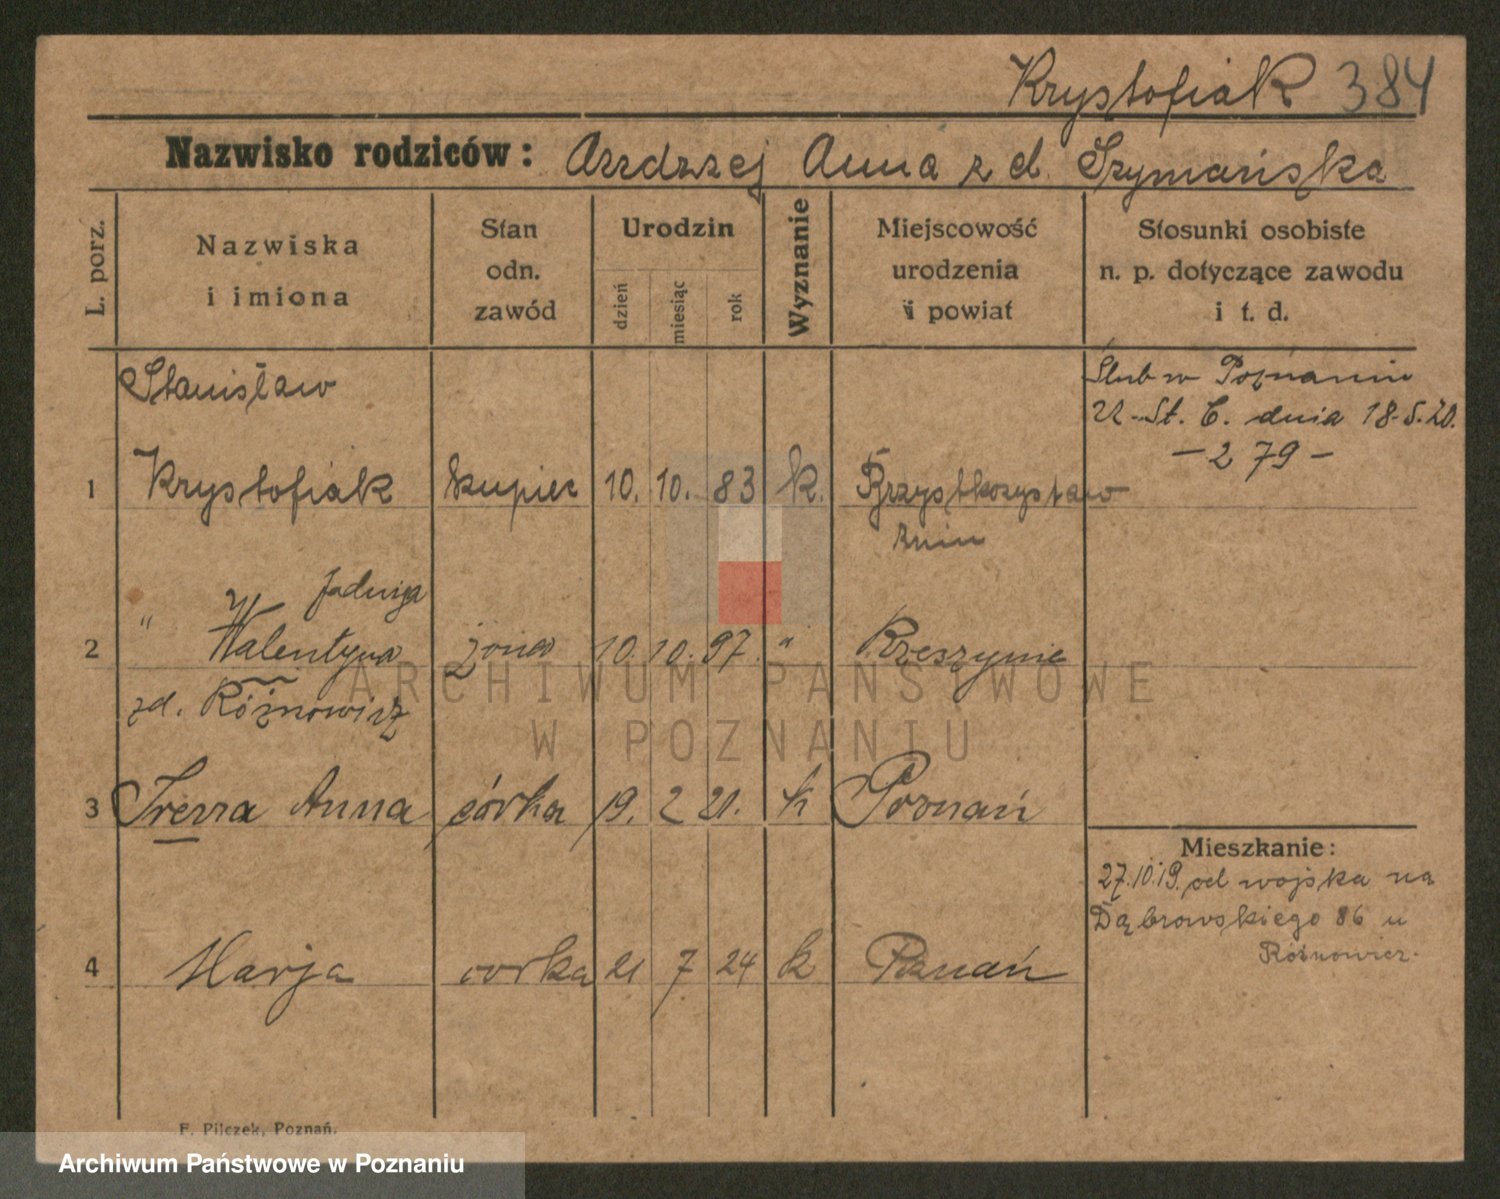 Krystofiak 384
Nazwisko rodziców: Andrzej Anna z d. Szymańska
L. porz.
Nazwiska
i imiona
Stan
odn.
zawód
Urodzin
dzień
miesiąc
rok
Wyznanie
Miejscowość
urodzenia
i powiat
Stosunki osobiste
n. p. dotyczące zawodu
i t. d.
Stanisław
Ślub w Poznaniu
U-St. C. dnia 18.5.20.
- 279 -
1 Krystofiak kupiec 10. 10. 83 k.
Żnin
Jadwiga
2 " Walentyna żona 10. 10. 97. " Rzeszynie
zd. Różnowicz
3 Irena Anna córka 19. 2 21. k Poznań
Mieszkanie:
27.10.19. od wojska na
Dąbrowskiego 86 u
Różnowicz.
4 Marja córka 21 7 24 k Poznań
F. Pilczek, Poznań.
ARCHIWUM PAŃSTWOWE
W POZNANIU
Archiwum Państwowe w Poznaniu